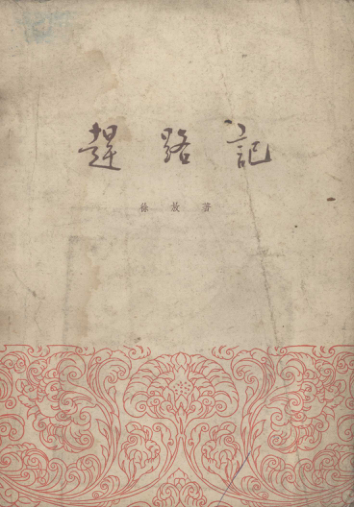 趕路記
徐放著